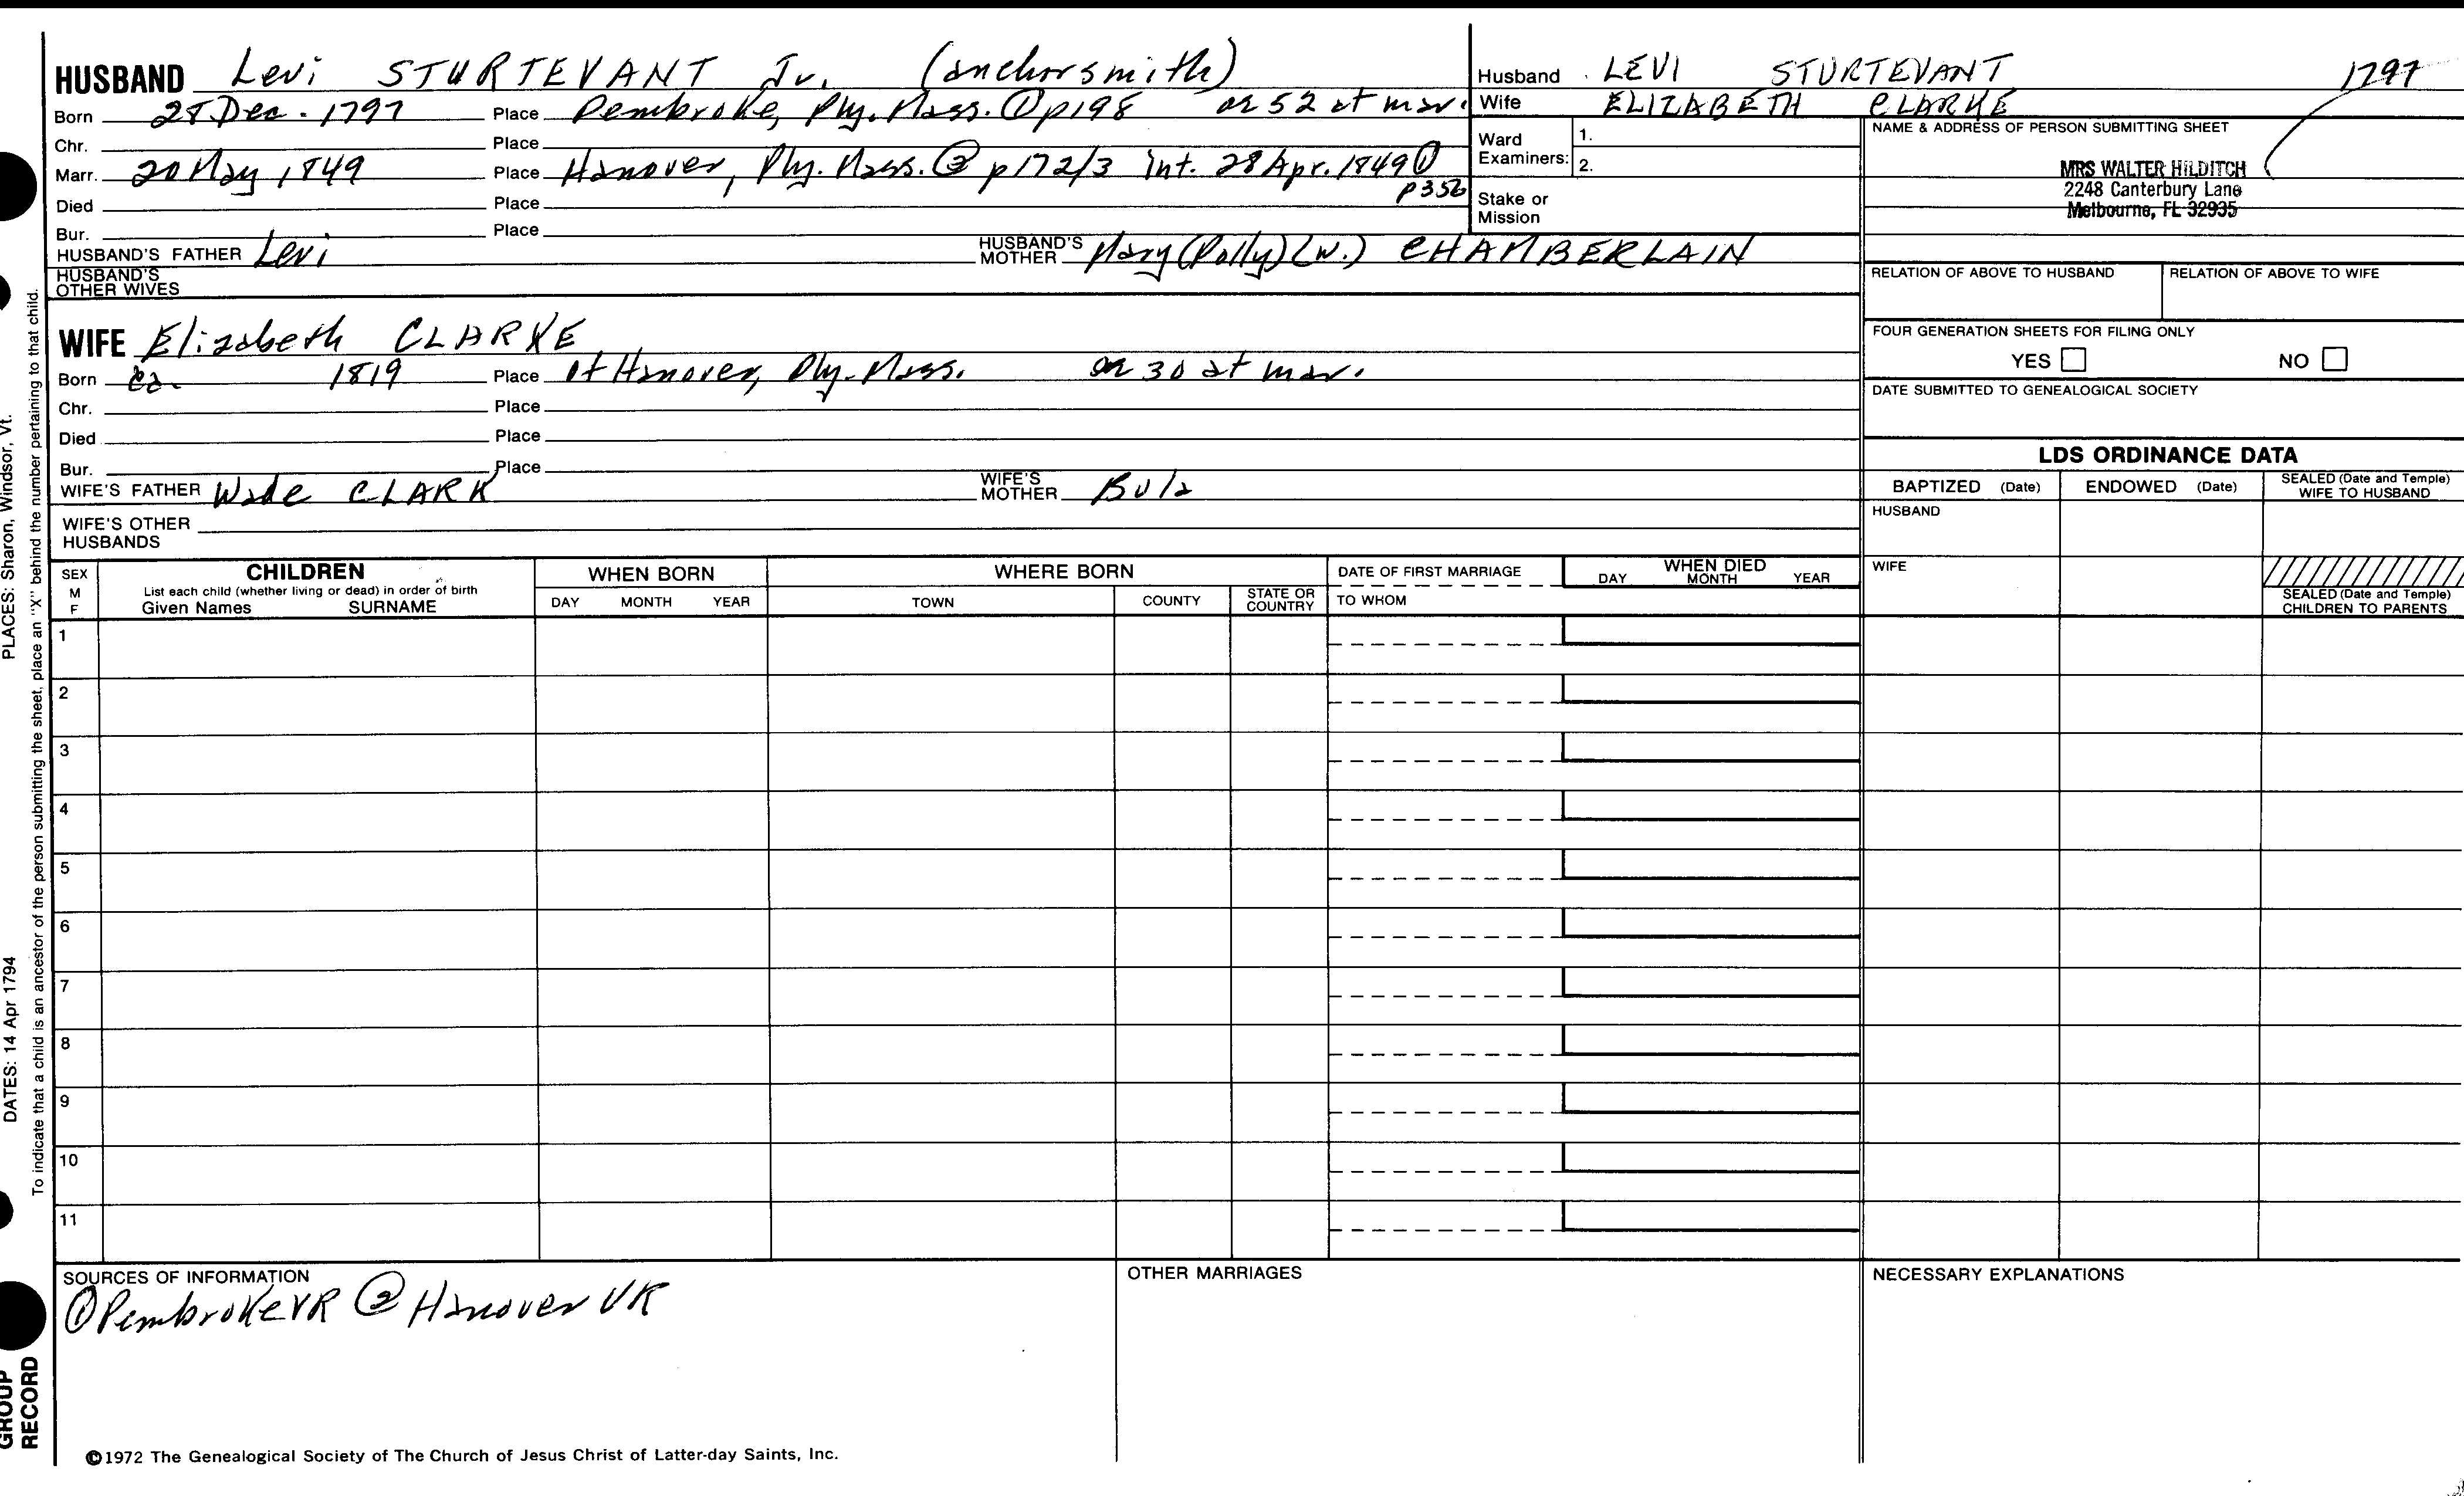 HUSBAND Levi STURTEVANT Jr. (anchorsmith)
Born 28 Dec. 1797 Place Pembroke, Ply. Mass. ① p198 ae 52 at mar.
Chr. Place
Marr. 20 May 1849 Place Hanover, Ply. Mass. ② p 172/3 int. 28 Apr. 1849 ①
p356
Died Place
Bur. Place
HUSBAND'S FATHER Levi HUSBAND'S MOTHER Mary (Polly) (W.) CHAMBERLAIN
HUSBAND'S OTHER WIVES
WIFE Elizabeth CLARKE
Born ca. 1819 Place of Hanover, Ply. Mass. ae 30 at mar.
Chr. Place
Died Place
Bur. Place
WIFE'S FATHER Wade CLARK WIFE'S MOTHER Bula
WIFE'S OTHER HUSBANDS
Husband LEVI STURTEVANT 1797
Wife ELIZABETH CLARKE
Ward Examiners: 1.
2.
Stake or Mission
NAME & ADDRESS OF PERSON SUBMITTING SHEET
MRS WALTER HILDITCH
2248 Canterbury Lane
Melbourne, FL 32935
RELATION OF ABOVE TO HUSBAND RELATION OF ABOVE TO WIFE
FOUR GENERATION SHEETS FOR FILING ONLY
YES NO
DATE SUBMITTED TO GENEALOGICAL SOCIETY
LDS ORDINANCE DATA
BAPTIZED (Date) ENDOWED (Date) SEALED (Date and Temple) WIFE TO HUSBAND
HUSBAND
WIFE
SEALED (Date and Temple) CHILDREN TO PARENTS
SEX M F
CHILDREN
List each child (whether living or dead) in order of birth
Given Names SURNAME
WHEN BORN
DAY MONTH YEAR
WHERE BORN
TOWN COUNTY STATE OR COUNTRY
DATE OF FIRST MARRIAGE
TO WHOM
WHEN DIED
DAY MONTH YEAR
1
2
3
4
5
6
7
8
9
10
11
SOURCES OF INFORMATION
① Pembroke VR ② Hanover VR
OTHER MARRIAGES
NECESSARY EXPLANATIONS
©1972 The Genealogical Society of The Church of Jesus Christ of Latter-day Saints, Inc.
PLACES: Sharon, Windsor, Vt.
DATES: 14 Apr 1794
To indicate that a child is an ancestor of the person submitting the sheet, place an "X" behind the number pertaining to that child.
GROUP
RECORD